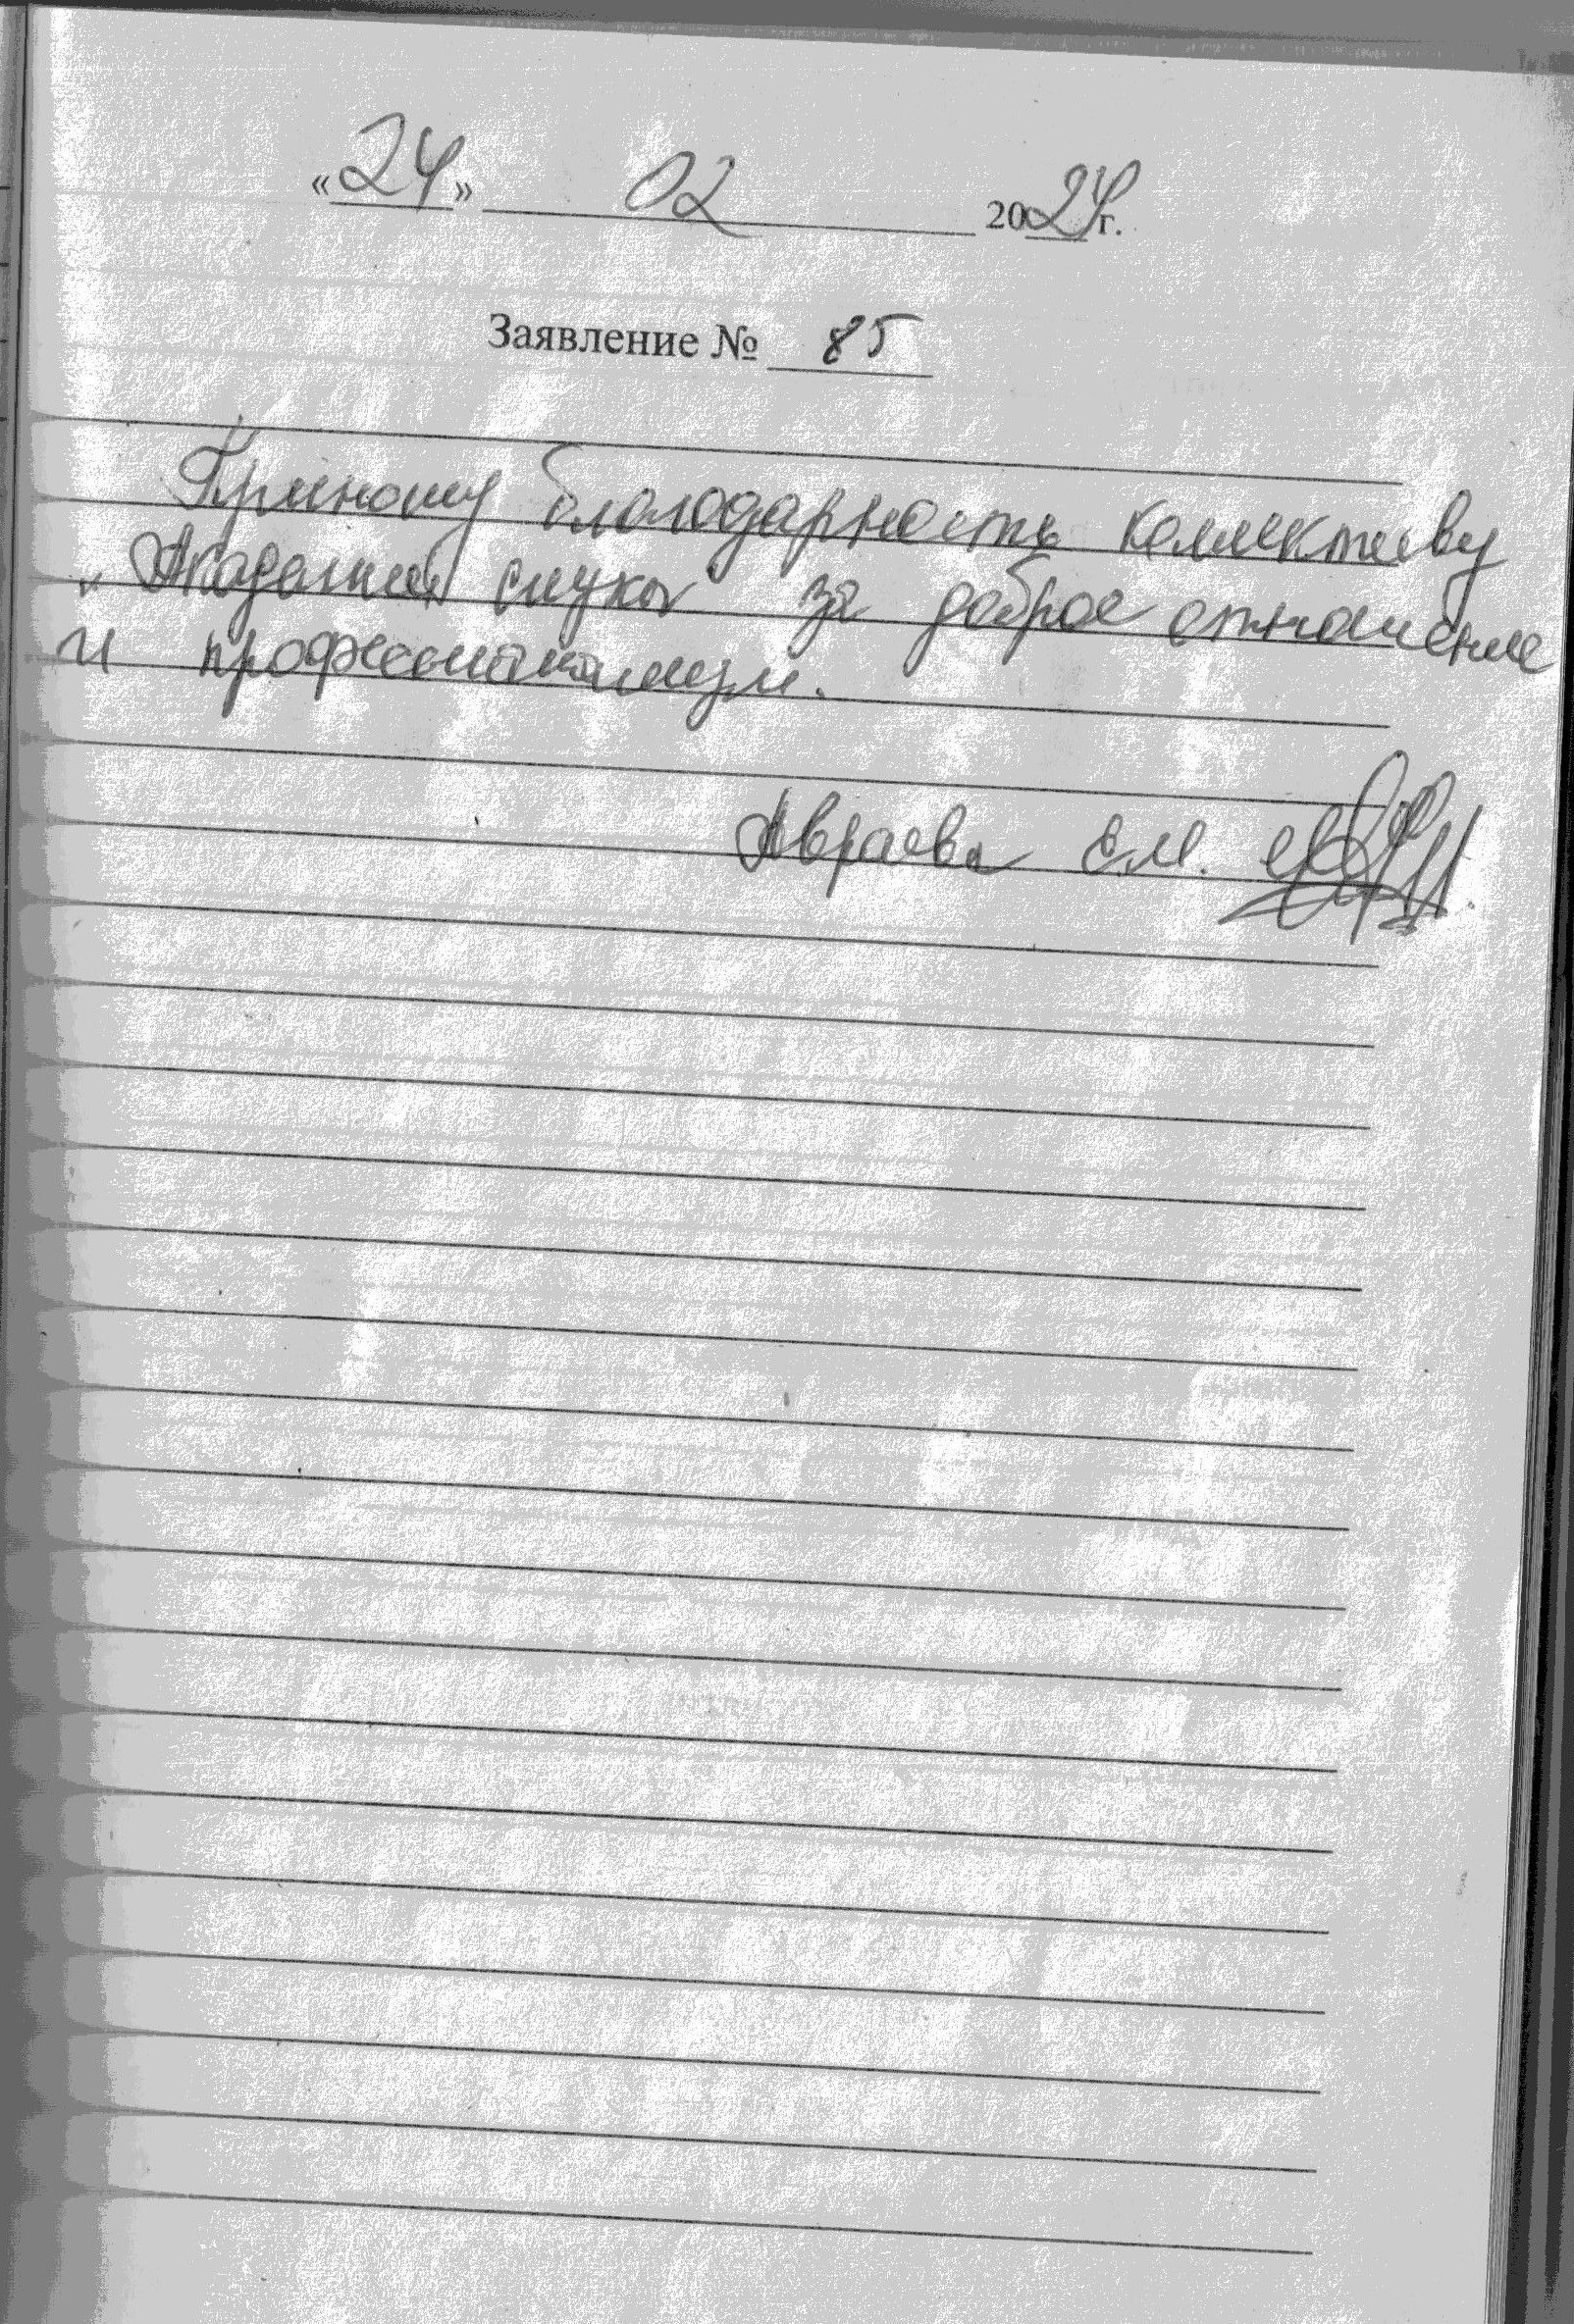 «24» 02 2024г.
Заявление № 85
Приношу благодарность коллективу
"Академия слуха" за доброе отношение
и профессионализм.
Авраева Е.М.